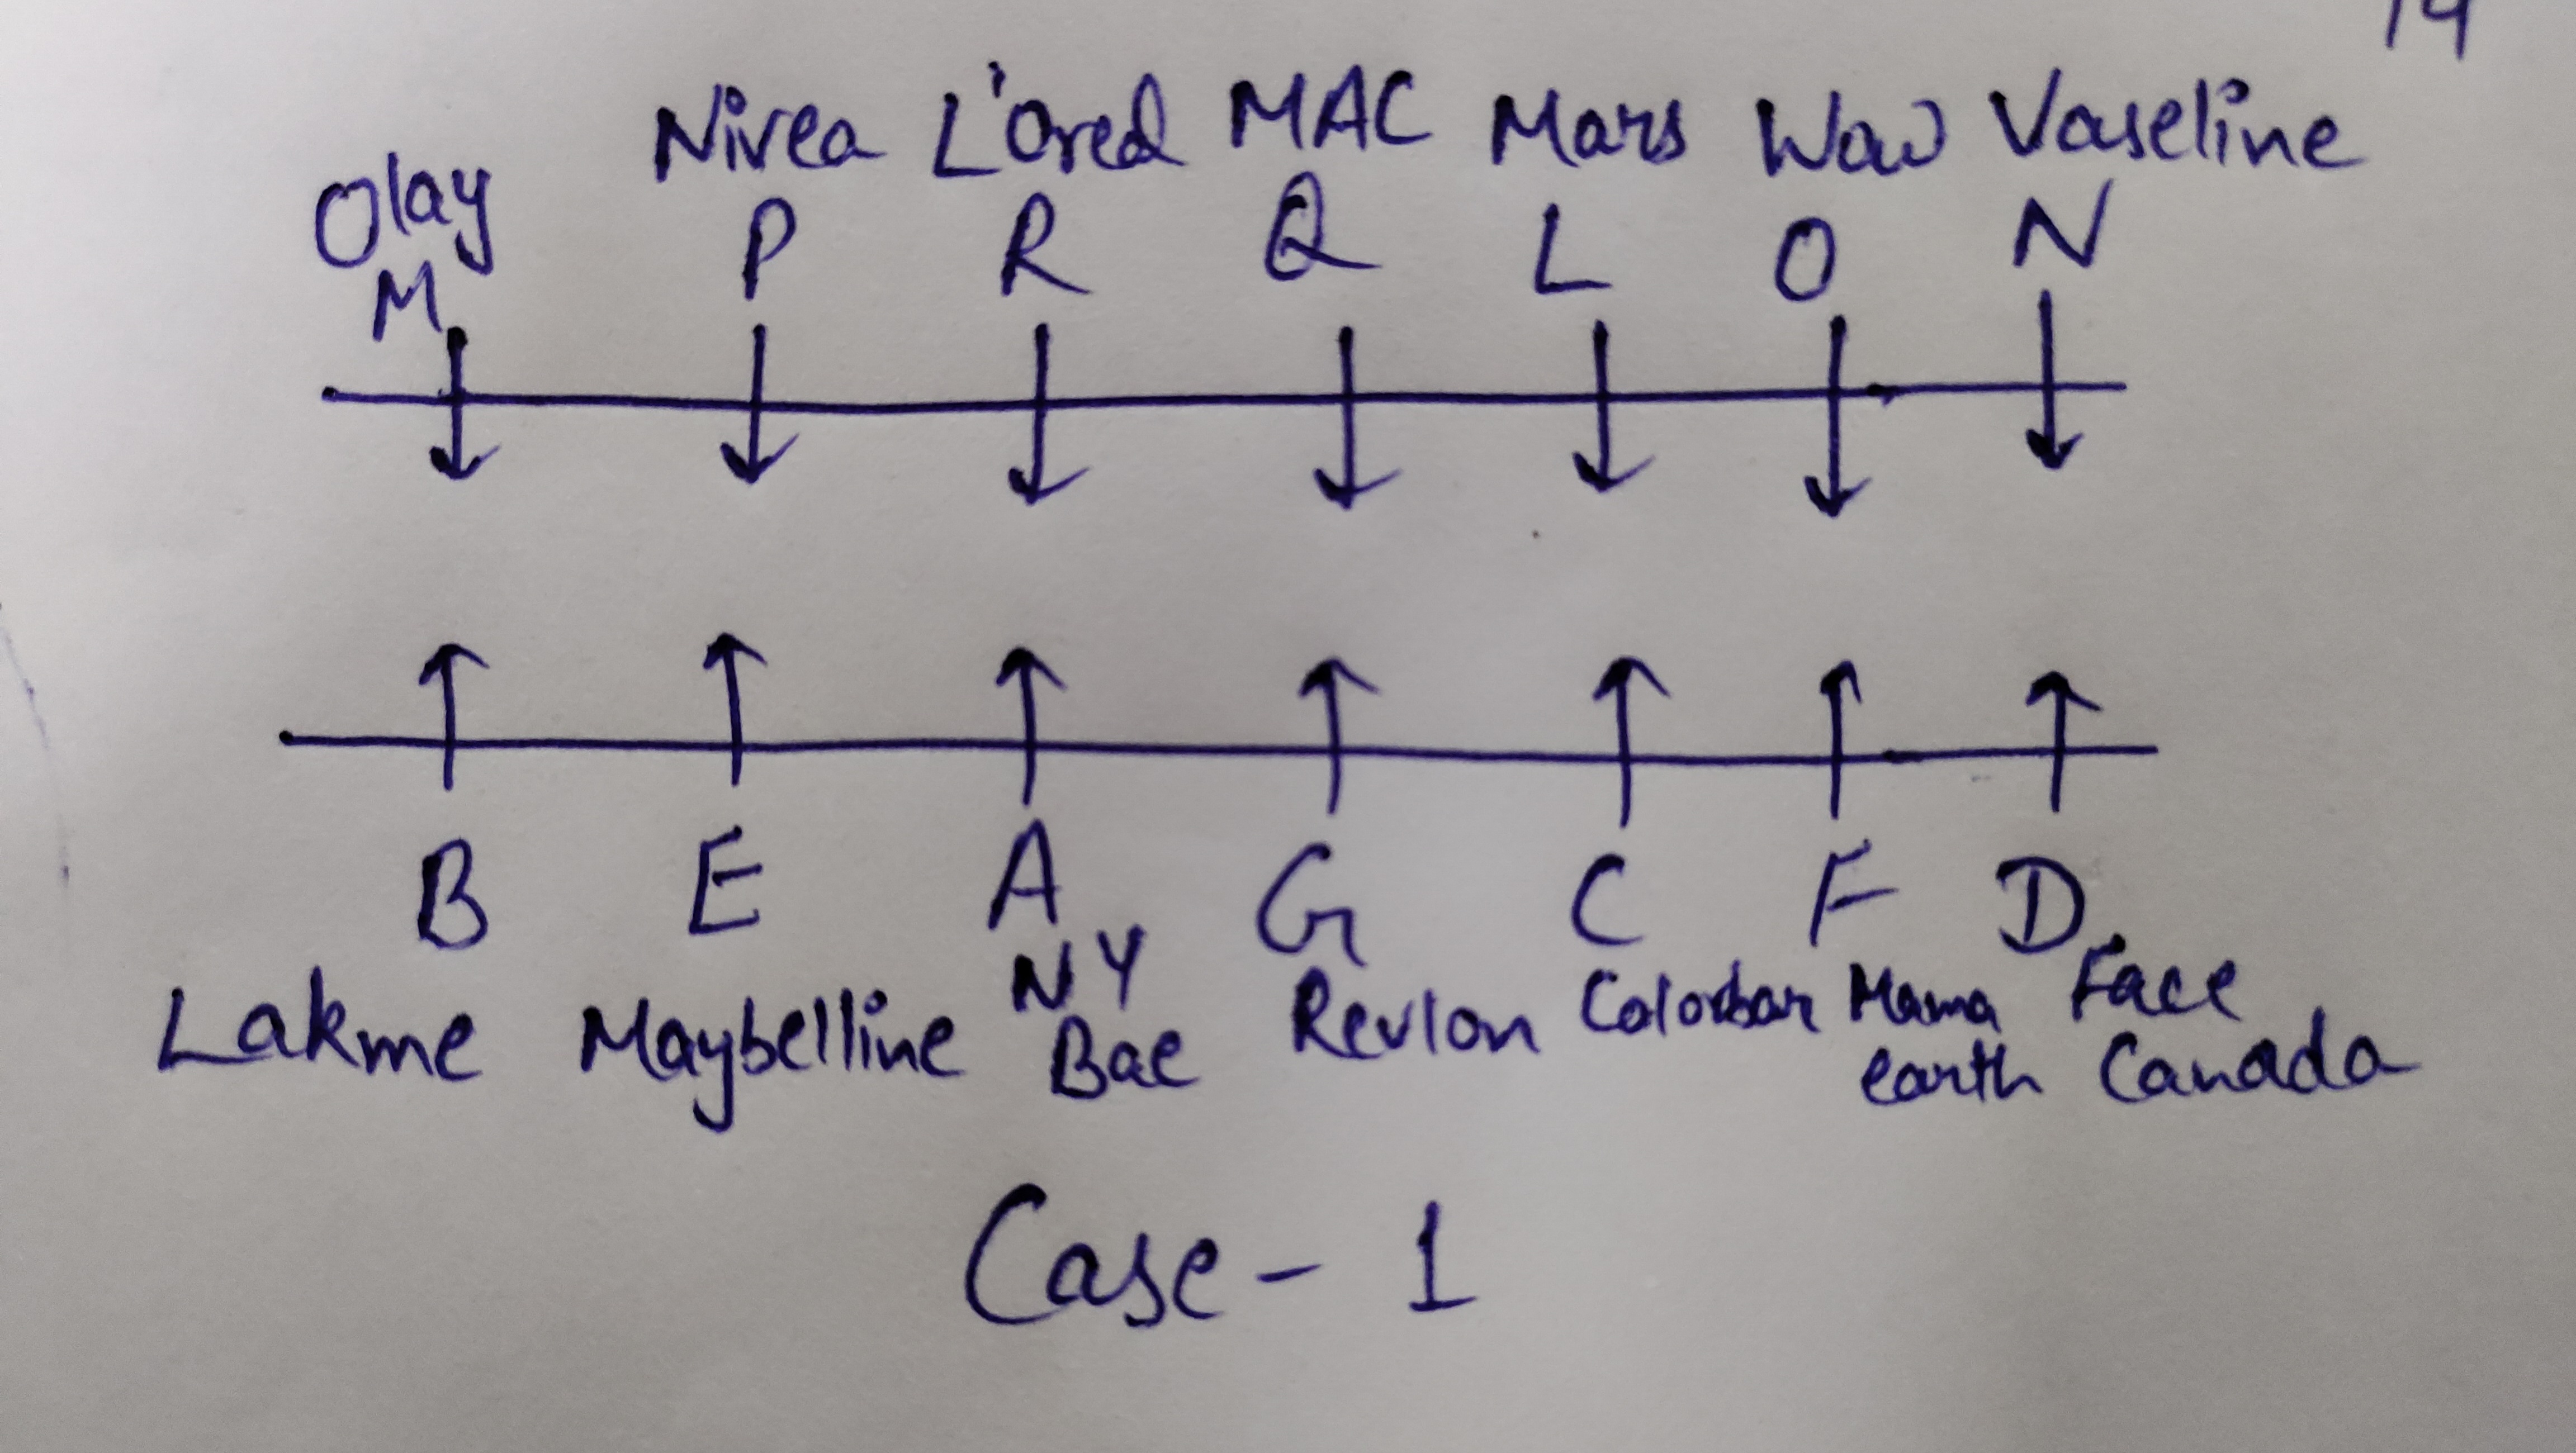 14
Nivea L'Oreal MAC Mars Wow Vaseline
Olay
M P R Q L O N
B E A G C F D
Lakme Maybelline NY Bae Revlon Colorbar Mama earth Face Canada
Case - 1